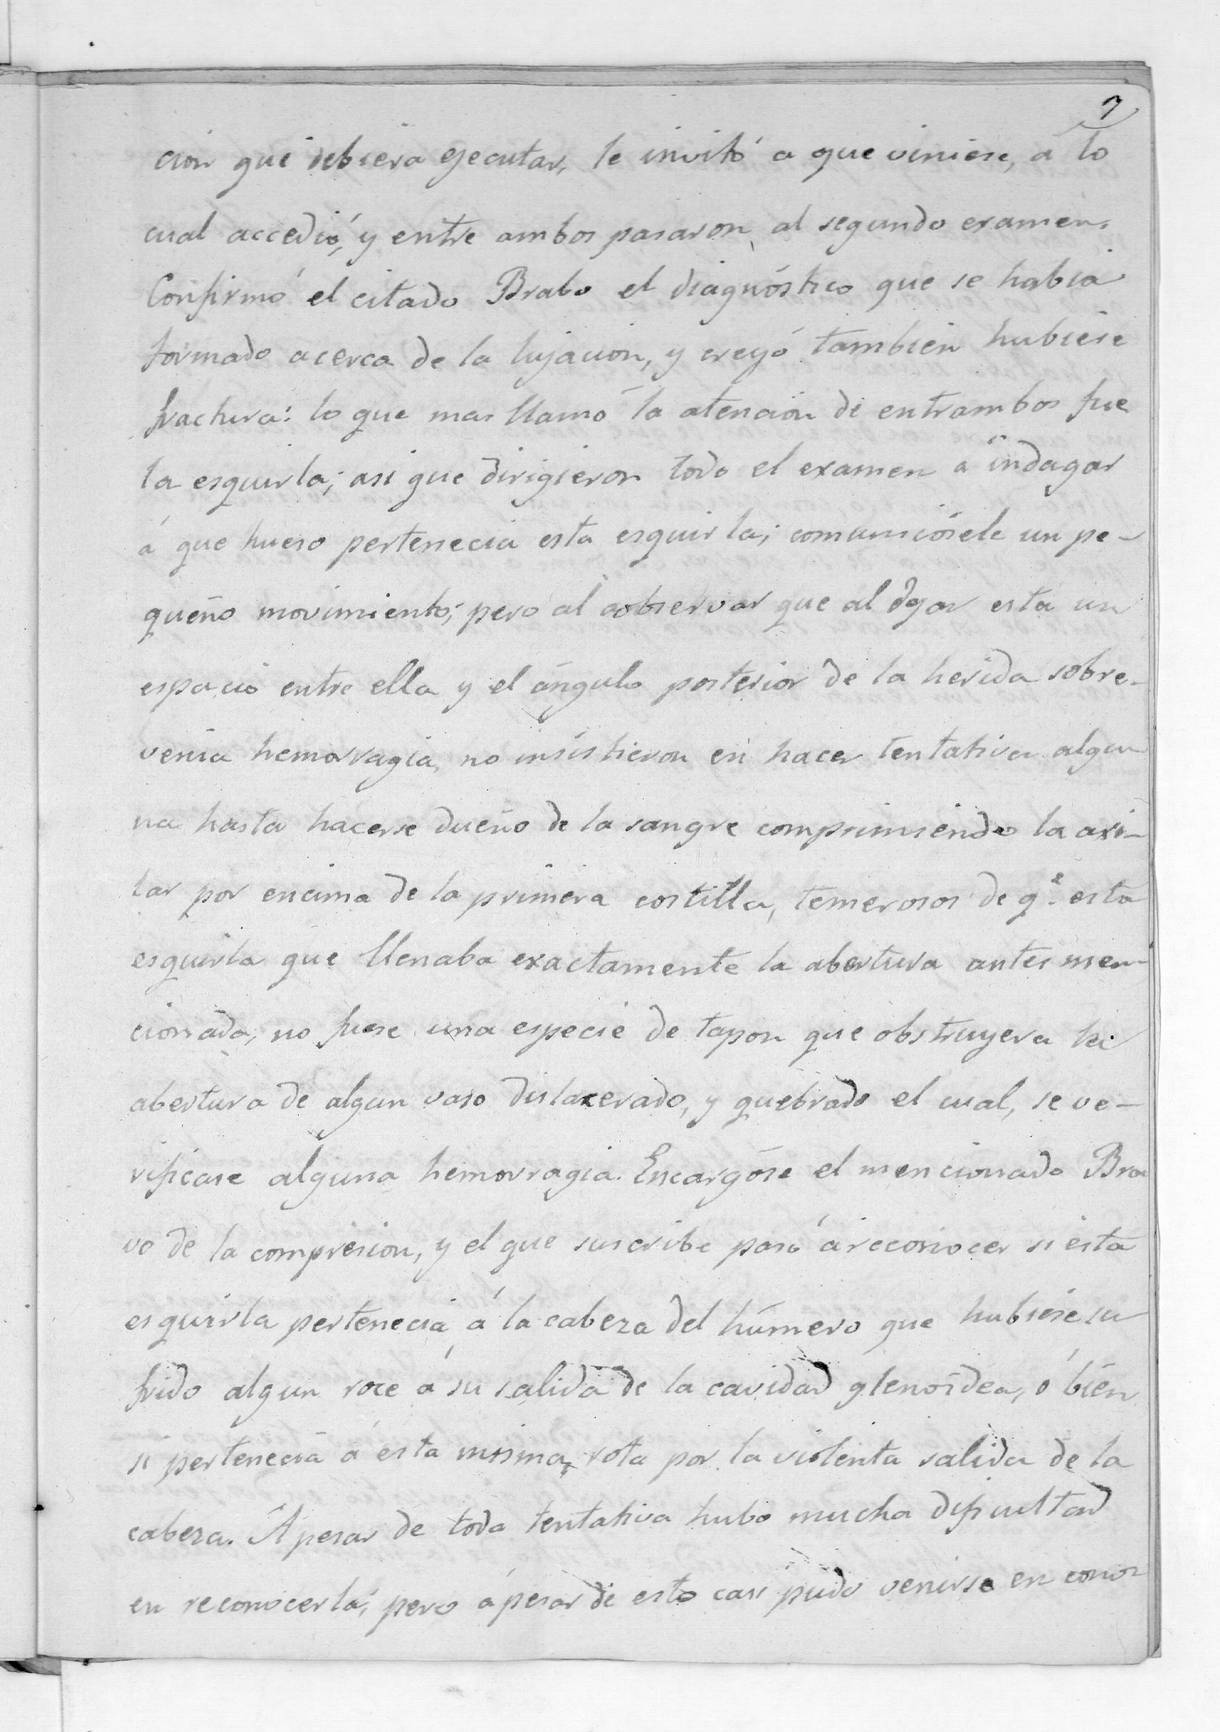 7
cion que debiera ejecutar, le invitó a que viniese, á lo
cual accedió, y entre ambos pasaron al segundo examen.
Confirmó el citado Brabo el diagnóstico que se habia
formado acerca de la lujacion, y creyó tambien hubiese
fractura: lo que mas llamó la atencion de entrambos fue
la esquirla; asi que dirigieron todo el examen á indagar
á que hueso pertenecia esta esquirla; comunicósele un pe-
queño movimiento; pero al observar que al dejar esta un
espacio entre ella y el ángulo posterior de la herida sobre-
venia hemorragia, no insistieron en hacer tentativa algu-
na hasta hacerse dueño de la sangre comprimiendo la axi-
lar por encima de la primera costilla, temerosos de q.e esta
esquirla que llenaba exactamente la abertura antes men-
cionada, no fuese una especie de tapon que obstruyera la
abertura de algun vaso dislacerado, y quebrado el cual, se ve-
rificase alguna hemorragia. Encargóse el mencionado Bra
vo de la compresion, y el que suscribe pasó á reconocer si esta
esquirla pertenecia á la cabeza del húmero que hubiese su
frido algun roce á su salida de la cavidad glenoidea, ó bien
si pertenecia á esta misma, rota por la violenta salida de la
cabeza. Á pesar de toda tentativa hubo mucha dificultad
en reconocerla; pero á pesar de esto casi pudo venirse en cono-